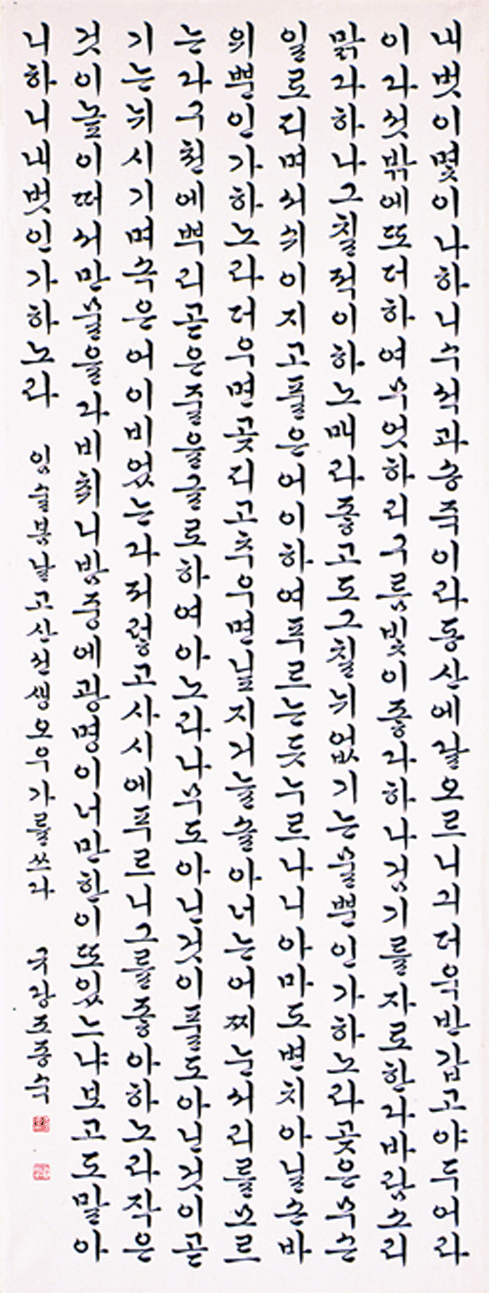 내벗이몇이나하니수석과송죽이라동산에달오르니긔더욱반갑고야두어라
이다섯밖에또더하여무엇하리구름빛이좋다하나검기를자로한다바람소리
맑다하나그칠적이하노매라좋고도그칠뉘없기는물뿐인가하노라꽃은무슨
일로피며서쉬이지고풀은어이하여푸르는듯누르나니아마도변치아닐손바
위뿐인가하노라더우면꽃피고추우면닢지거늘솔아너는어찌눈서리를모르
는다구천에뿌리곧은줄을글로하여아노라나무도아닌것이풀도아닌것이곧
기는뉘시기며속은어이비었는다저렇고사시에푸르니그를좋아하노라작은
것이높이떠서만물을다비취니밤중에광명이너만한이또있느냐보고도말아
니하니내벗인가하노라 임술봄날고산선생오우가를쓰다 규당조종숙